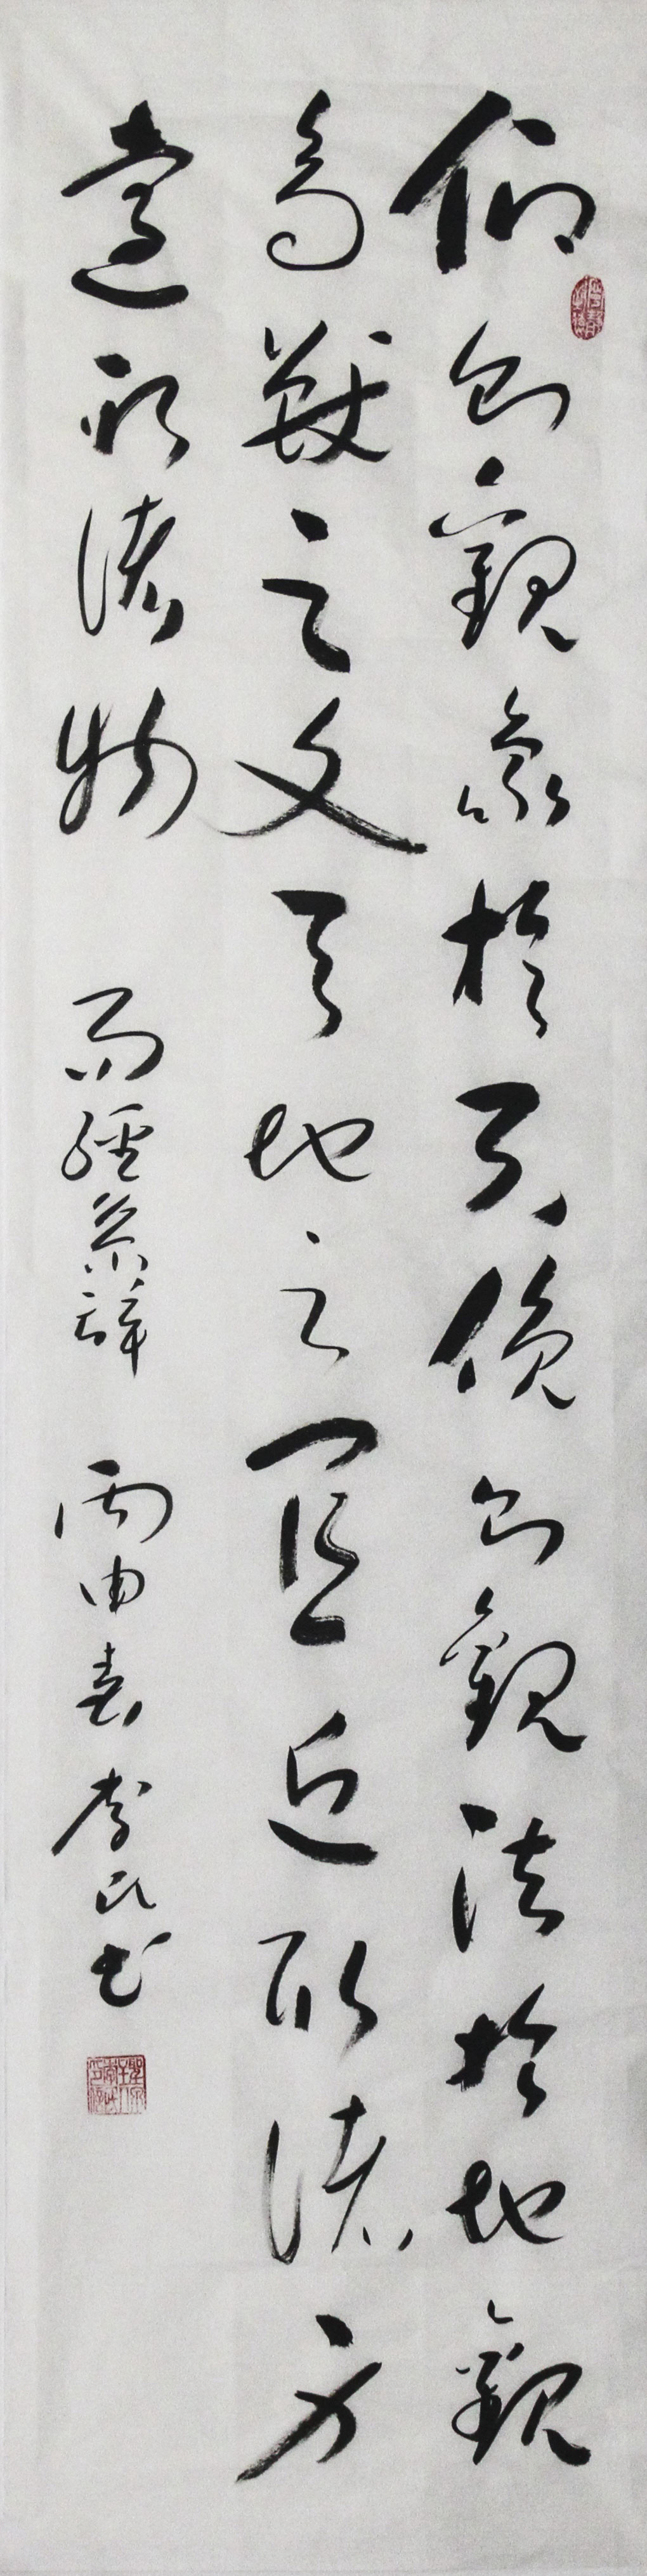 仰則觀象於天俯則觀法於地觀
鳥獸之文與地之宜近取諸身
遠取諸物 易經繫辭 丙申春李書